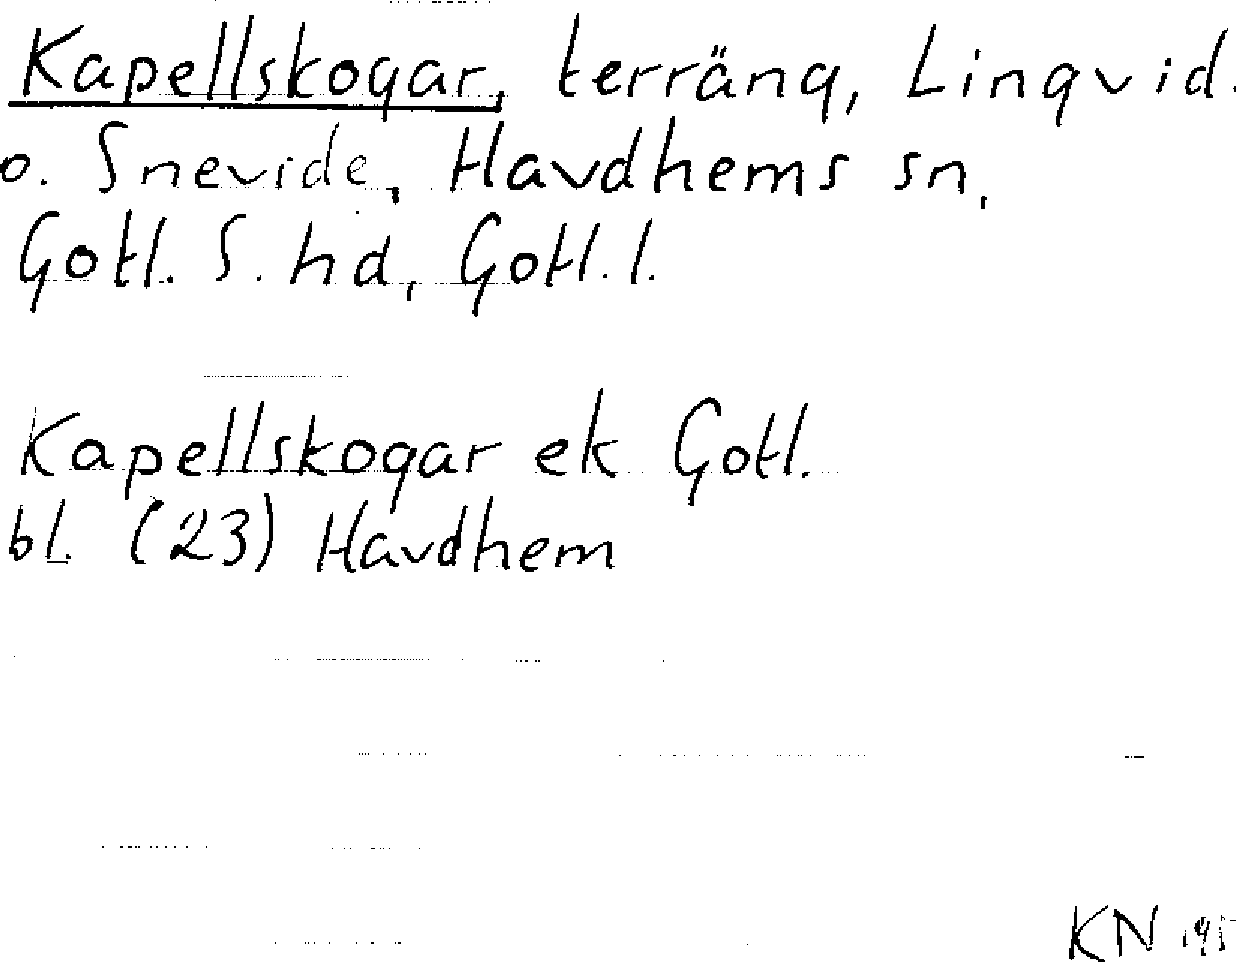 Kapellskogar, terräng, Lingvid.
o. Snevide, Havdhems sn,
Gotl. S. hd, Gotl. l.
Kapellskogar ek Gotl.
bl. (23) Havdhem
KN 195